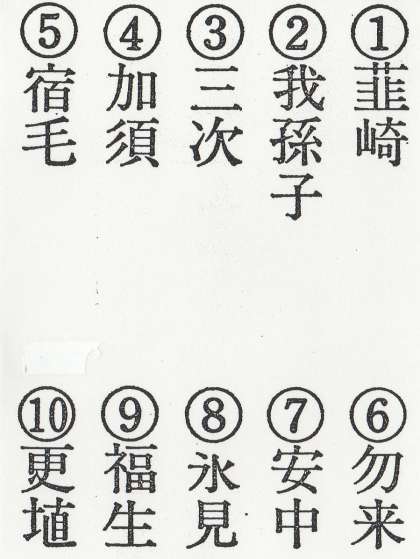 ①韮崎
②我孫子
③三次
④加須
⑤宿毛
⑥勿来
⑦安中
⑧氷見
⑨福生
⑩更埴